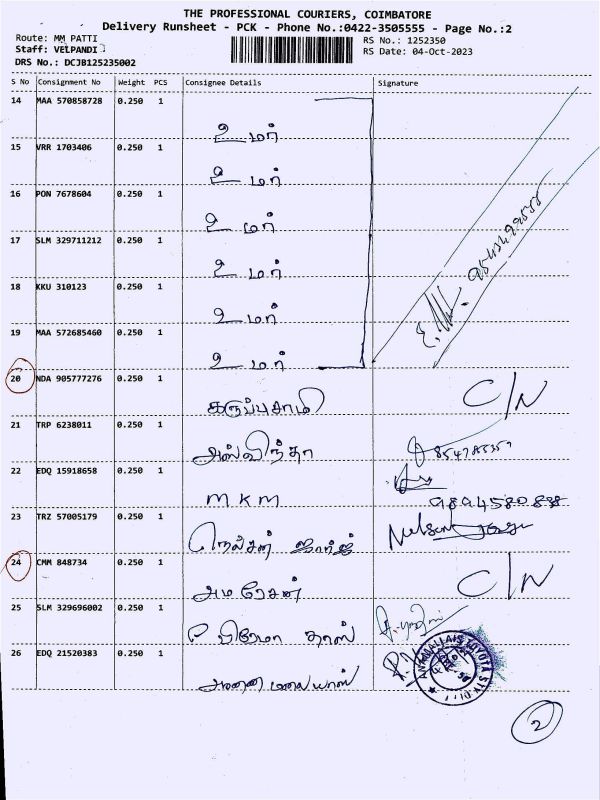 THE PROFESSIONAL COURIERS, COIMBATORE
Delivery Runsheet - PCK - Phone No.:0422-3505555 - Page No.:2
Route: MM PATTI
RS No.: 1252350
Staff: VELPANDI
RS Date: 04-Oct-2023
DRS No.: DCJB125235002
S No Consignment No Weight PCS Consignee Details Signature
14 MAA 570858728 0.250 1
உமர்
15 VRR 1703406 0.250 1
உமர்
16 PON 7678604 0.250 1
உமர்
17 SLM 329711212 0.250 1
உமர்
18 KKU 310123 0.250 1
உமர்
19 MAA 572685460 0.250 1
உமர்
20 NDA 905777276 0.250 1
கருப்பசாமி C/N
21 TRP 6238011 0.250 1
அஸ்விந்தா
22 EDQ 15918658 0.250 1
MKM
23 TRZ 57005179 0.250 1
நெல்சன் ஜார்ஜ் Nelson
24 CMM 848734 0.250 1
அமரேசன் C/N
25 SLM 329696002 0.250 1
பிரேமா தாஸ்
26 EDQ 21520383 0.250 1
ANAMALLAIS TOYOTA
2